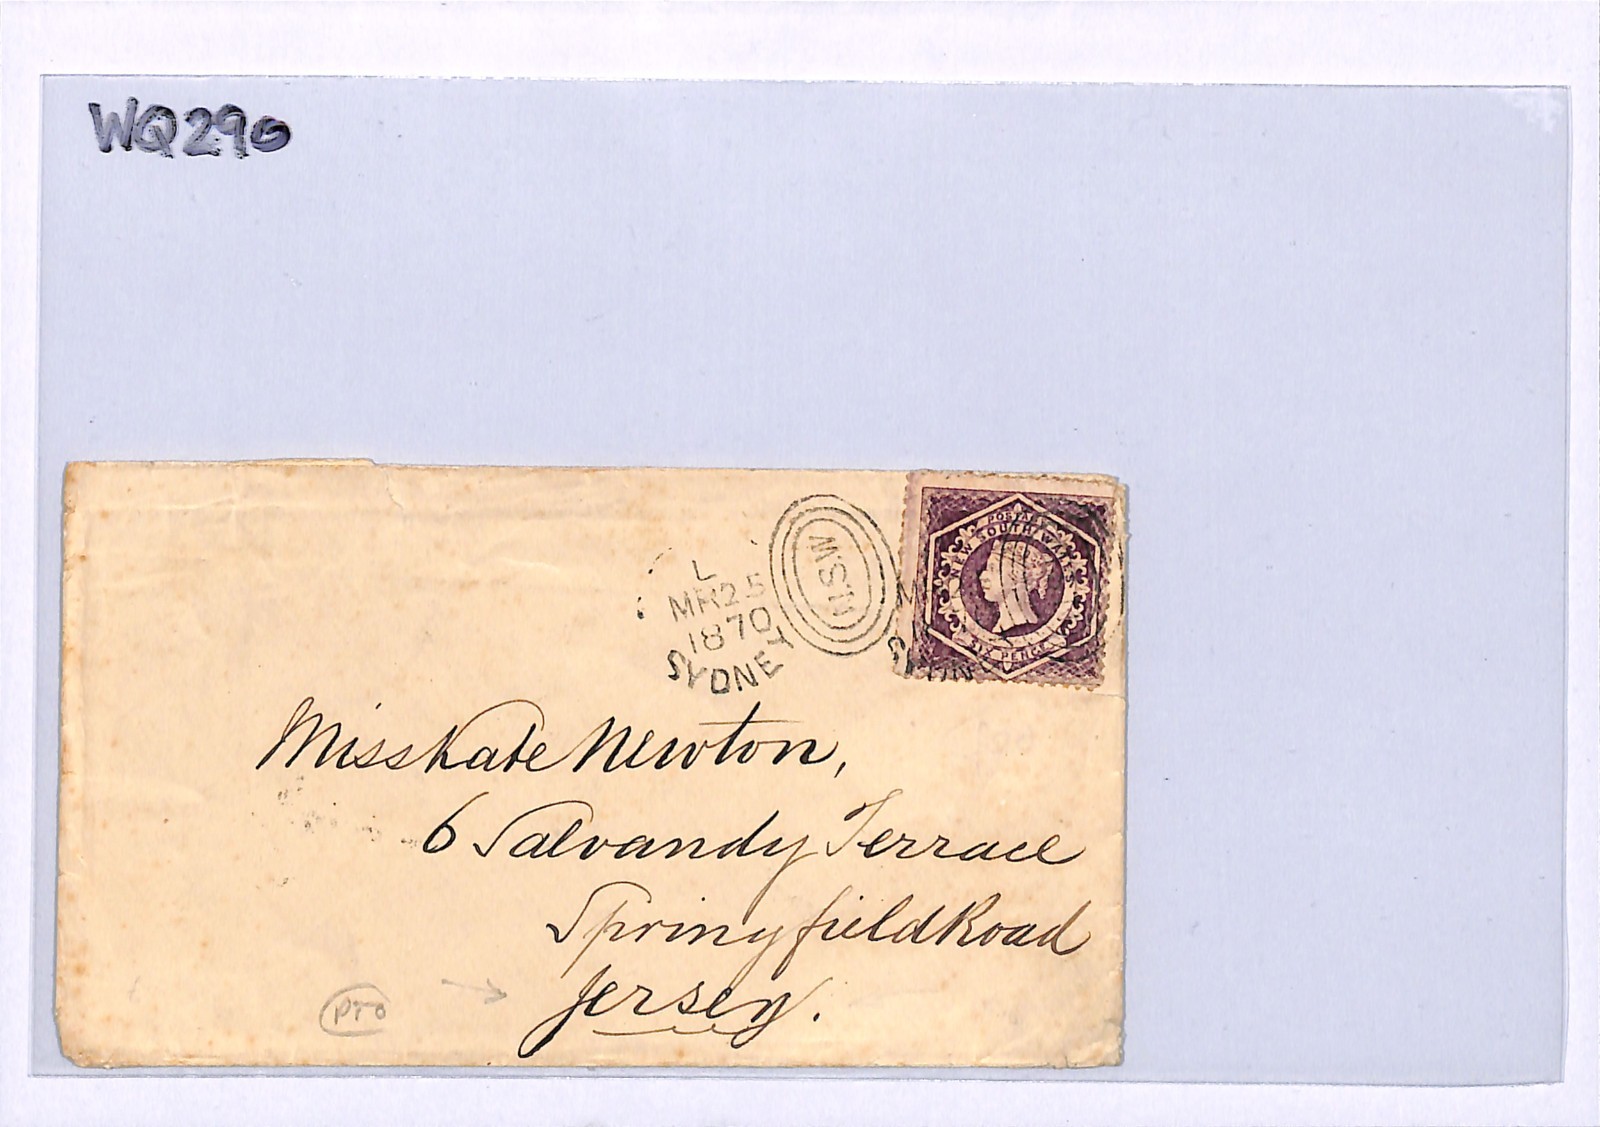 WQ290
POSTAGE
NEW SOUTH WALES
SIX PENCE
N.S.W
L
MR 25
1870
SYDNEY
Miss Kate Newton,
6 Salvandy Terrace
Springfield Road
Jersey.
PTO